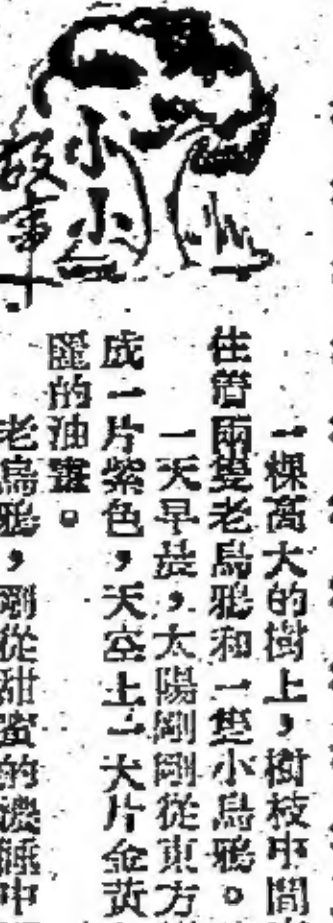 小小
故事
一棵高大的樹上，樹枝中間
住着兩隻老烏鴉和一隻小烏鴉。
一天早晨，太陽剛剛從東方
成一片紫色，天空上一大片金黃
的油畫。
老烏鴉，剛從甜蜜的濃睡中